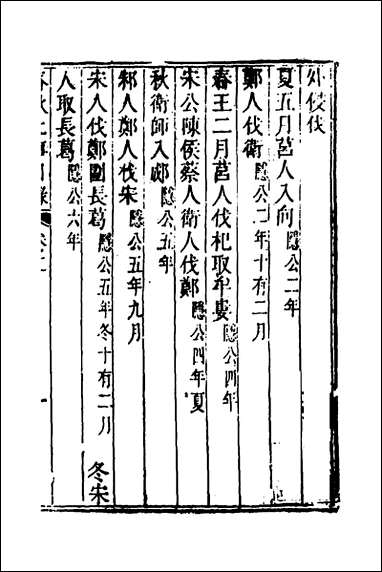 外侵伐
夏五月莒人入向隱公二年
鄭人伐衛隱公二年十有二月
春王二月莒人伐杞取牟婁隱公四年
宋公陳侯蔡人衛人伐鄭隱公四年夏
秋衛師入郕隱公五年
邾人鄭人伐宋隱公五年九月
宋人伐鄭圍長葛隱公五年冬十有二月 冬宋
人取長葛隱公六年
春秋